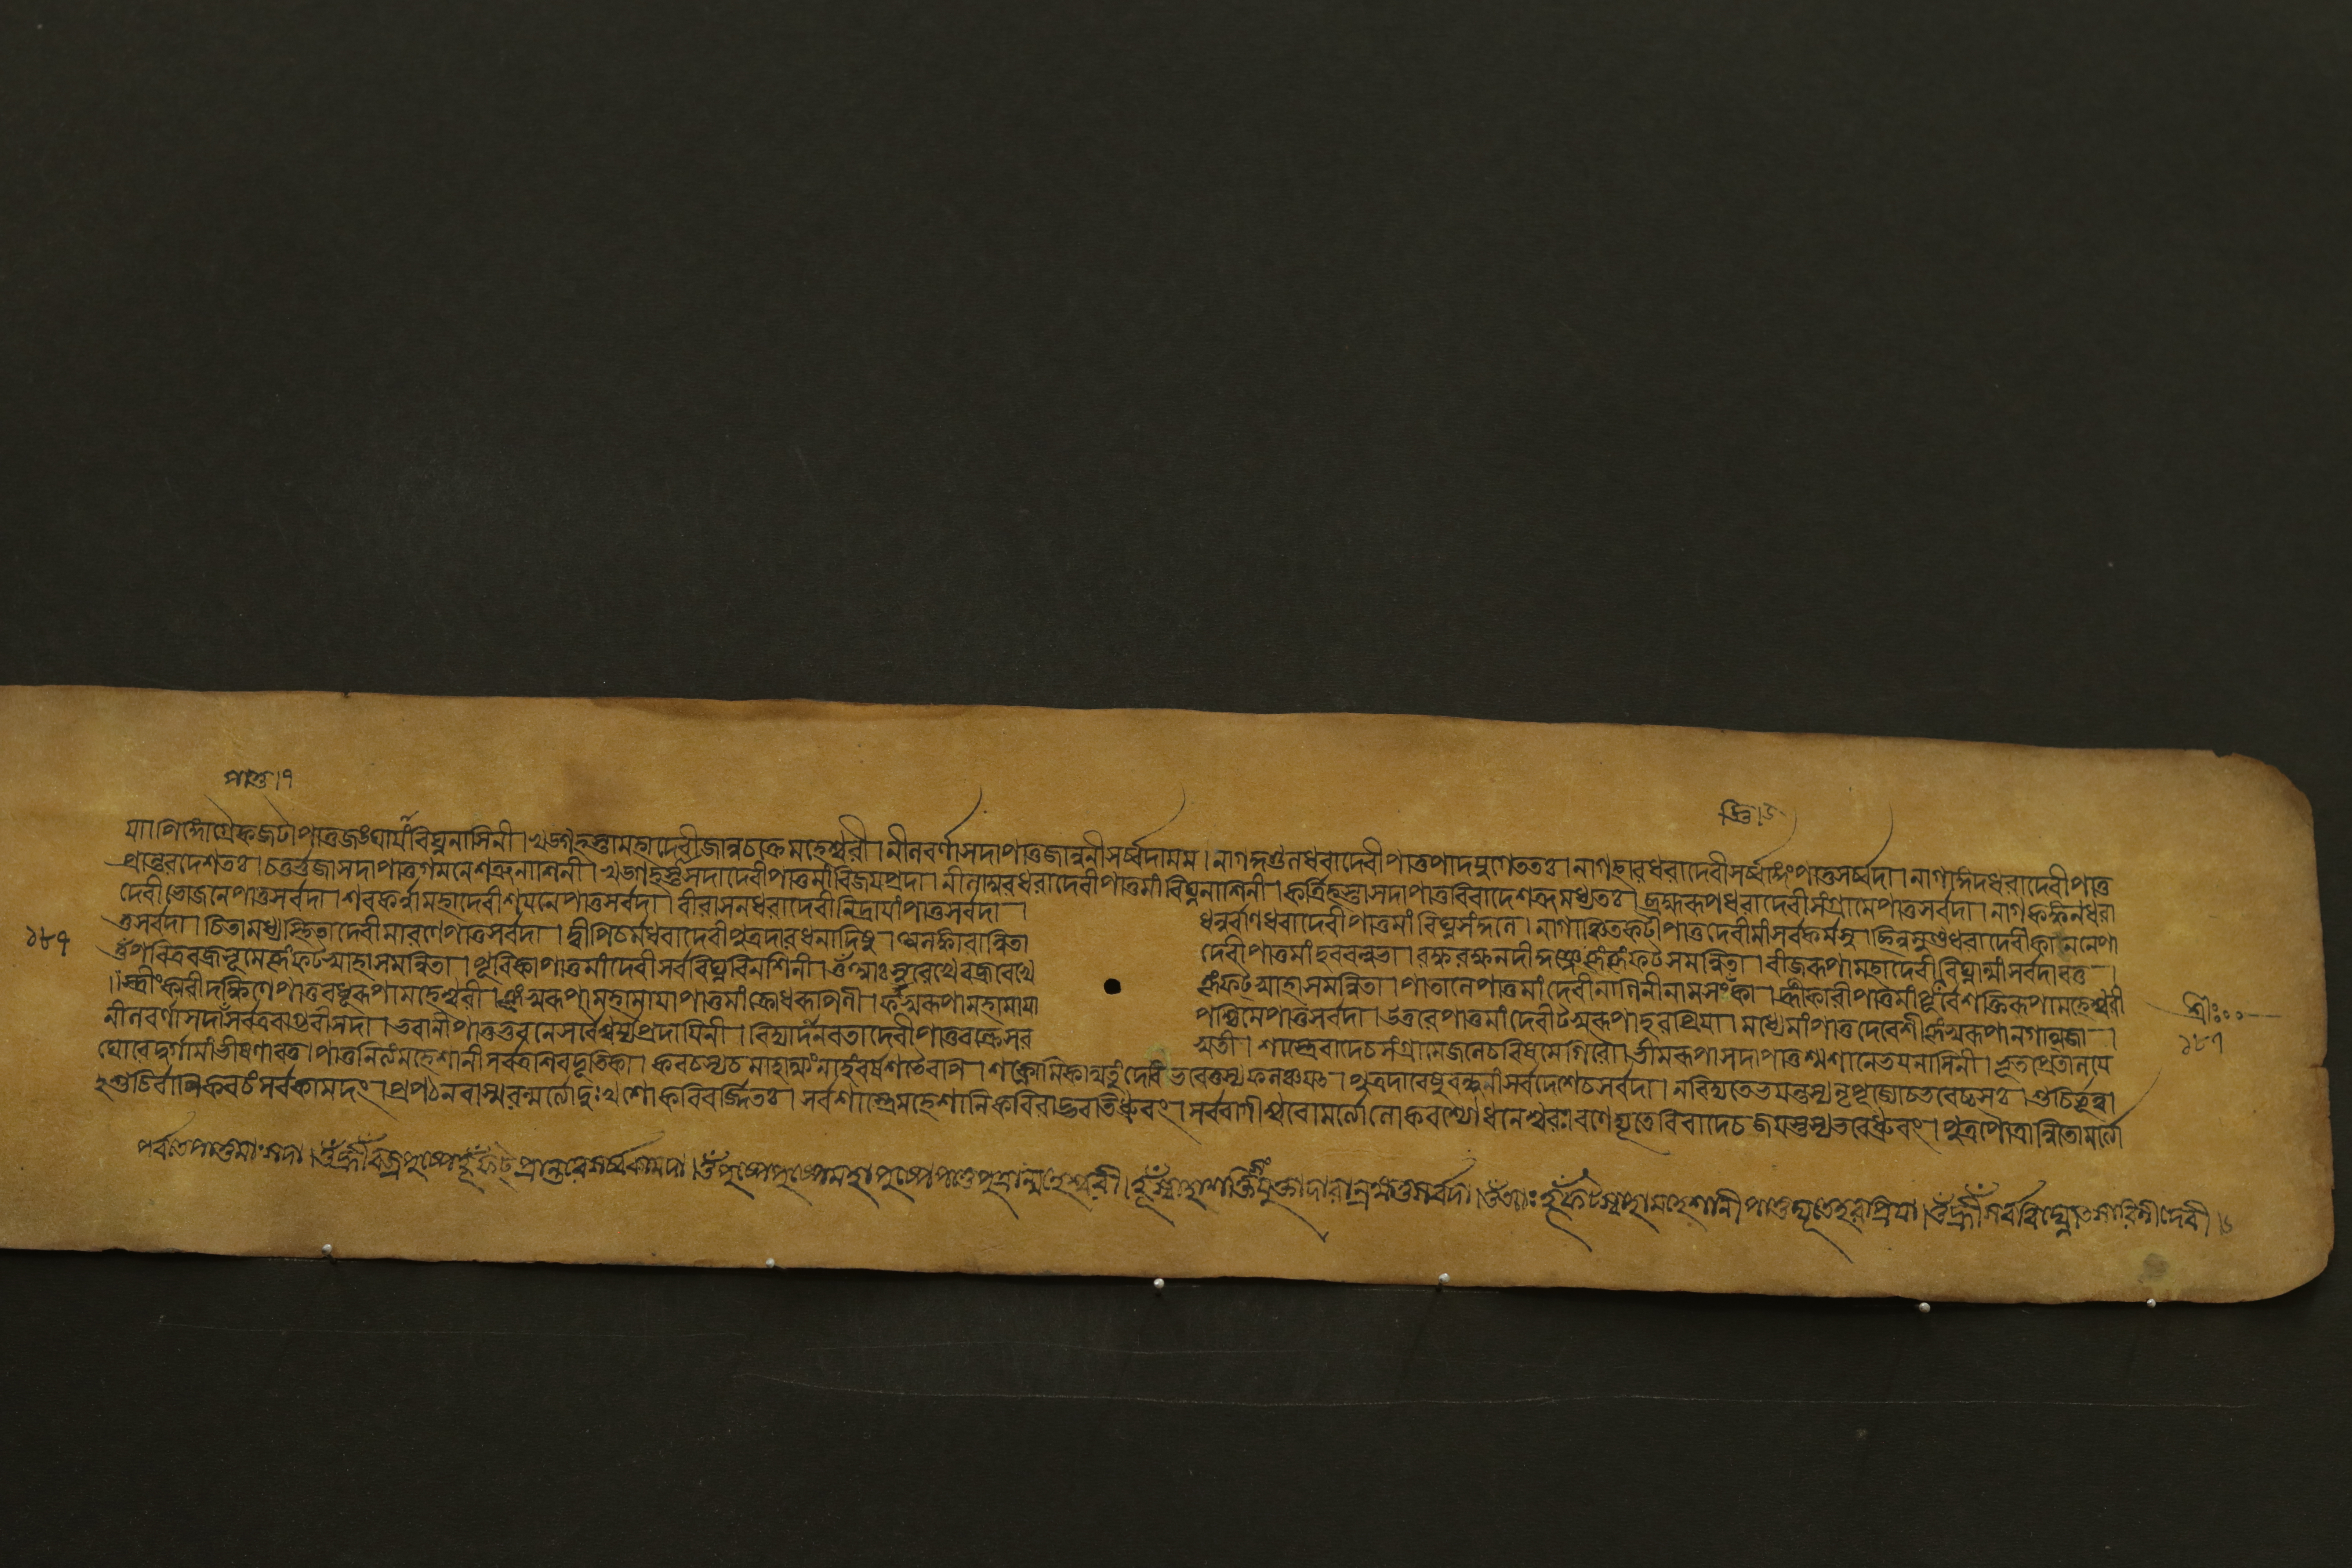 পাতু।১
দ্রু।২
যা। পিঙ্গোগ্রৈকজটা পাতু জঙ্ঘায়াং বিঘ্ননাসিনী। খড়্গহস্তা মহাদেবী জানুচক্রে মহেশ্বরী। নীলবর্ণা সদা পাতু জানুনী সর্ব্বদা মম। নাগকুণ্ডলধরা দেবী পাতু পাদযুগে ততঃ। নাগহারধরা দেবী সর্ব্বাঙ্গং পাতু সর্ব্বদা। নাগাঙ্গদধরা দেবী পাতু
প্রান্তরদেশতঃ। চতুর্ভুজা সদা পাতু গমনে শত্রুনাশিনী। খড়্গহস্তা সদা দেবী পাতু মাং বিজয়প্রদা। নীলাম্বরধরা দেবী পাতু মাং বিঘ্ননাশিনী। কর্ত্রিহস্তা সদা পাতু বিবাদে শত্রুমধ্যতঃ। ব্রহ্মরূপধরা দেবী সংগ্রামে পাতু সর্বদা। নাগকঙ্কনধরা
দেবী ভোজনে পাতু সর্বদা। শবকর্ন্না মহাদেবী শয়নে পাতু সর্বদা। বীরাসনধরা দেবী নিদ্রায়াং পাতু সর্বদা। ধনুর্বাণধরা দেবী পাতু মাং বিঘ্নসংকুলে। নাগাঞ্চিতকটী পাতু দেবী মাং সর্বকর্মসু। ছিন্নমুণ্ডধরা দেবী কাননে পা
তু সর্বদা। চিতামধ্যস্থিতা দেবী মারণে পাতু সর্বদা। দ্বীপিচর্মধরা দেবী পুত্রদারধনাদিষু। অলঙ্কারান্বিতা দেবী পাতু মাং হরবল্লভা। রক্ষ রক্ষ নদীকুঞ্জে হূং হূং ফট সমন্বিতা। বীজরূপা মহাদেবী বিঘ্নান্মাং সর্বদাবতু।
ওঁ পবিত্রবজ্রভূমে হূং ফট স্বাহা সমন্বিতা। পূর্বিকা পাতু মাং দেবী সর্ববিঘ্নবিনশিনী। ওঁ আঃ সুরেখে বজ্ররেখে হূং ফট্ স্বাহা সমন্বিতা। পাতালে পাতু মাং দেবী নাগিনী নামসংজ্ঞকা। হ্রীঁকারী পাতু মাং পূর্বে শক্তিরূপা মহেশ্বরী
।স্ত্রীংকারী দক্ষিণে পাতু বধূরূপা মহেশ্বরী। হূং স্বরূপা মহামায়া পাতু মাং ক্রোধরূপিণী। ফঁ স্বরূপা মহামায়া পশ্চিমে পাতু সর্বদা। উত্তরে পাতু মাং দেবী ট স্বরূপা হরপ্রিয়া। মধ্যে মাং পাতু দেবেশী হূং স্বরূপা নগাত্মজা।
নীলবর্ণা সদা সর্বত্র বাগ্ভবী সদা। ভবানী পাতু ভুবনে সর্বৈশ্বর্য্যপ্রদায়িনী। বিদ্যাদনরতা দেবী পাতু বক্ত্রে সর স্বতী। শাস্ত্রে বাদে চ সংগ্রামে জলে চ বিষমে গিরৌ। ভীমরূপা সদা পাতু শ্মশানে ভয়নাসিনী। ভূতপ্রেতালয়ে
ঘোরে দুর্গা মাং ভীষণাবতু। পাতু নিত্যং মহেশানী সর্বত্র শিবদূতিকা। কবচস্য চ মাহাত্ম্যং নাহং বর্ষশতৈরপি। শক্নোমি কথিতুং দেবি ভবেত্তস্য ফলঞ্চ যৎ। পুত্রদারেষু বন্ধূনাং সর্বদেশে চ সর্বদা। ন বিদ্যতে ভয়ন্তস্য নৃপপূজ্যো চ ভবেচ্চ সঃ। শুচির্ভূত্বা
হশুচির্বাপি কবচং সর্বকামদং। প্রপঠন্ বা স্মরন্ মর্ত্যো দুঃখশোকবিবর্জ্জিতঃ। সর্বশাস্ত্রে মহেশানি কবিরাড্ভবতি ধ্রুবং। সর্ববাগীশ্বরো মর্ত্যো লোকবশ্যো ধনেশ্বরঃ। রণে দ্যূতে বিবাদে চ জয়স্তস্য ভবেদ্ধ্রুবং। পুত্রপৌত্রান্বিতো মর্ত্যো
পর্বতে পাতু মাং সদা। ওঁ হ্রীঁ বজ্রপুষ্পে হূঁ ফট্ প্রান্তরে সর্ব্বকামদা। ওঁ পুষ্পে পুষ্পে মহাপুষ্পে পাতু পুত্রান্মহেশ্বরী। হূঁ স্বাহা শক্তিসংযুক্তা দারান্ রক্ষতু সর্বদা। ওঁ আঃ হূঁ ফট্ স্বাহা মহেশানী পাতু দ্যূতে হরপ্রিয়া। ওঁ হ্রীঁ সর্ববিঘ্নোৎসারিণী দেবী।৬
১৮৭
শ্রীঃ
১৮৭